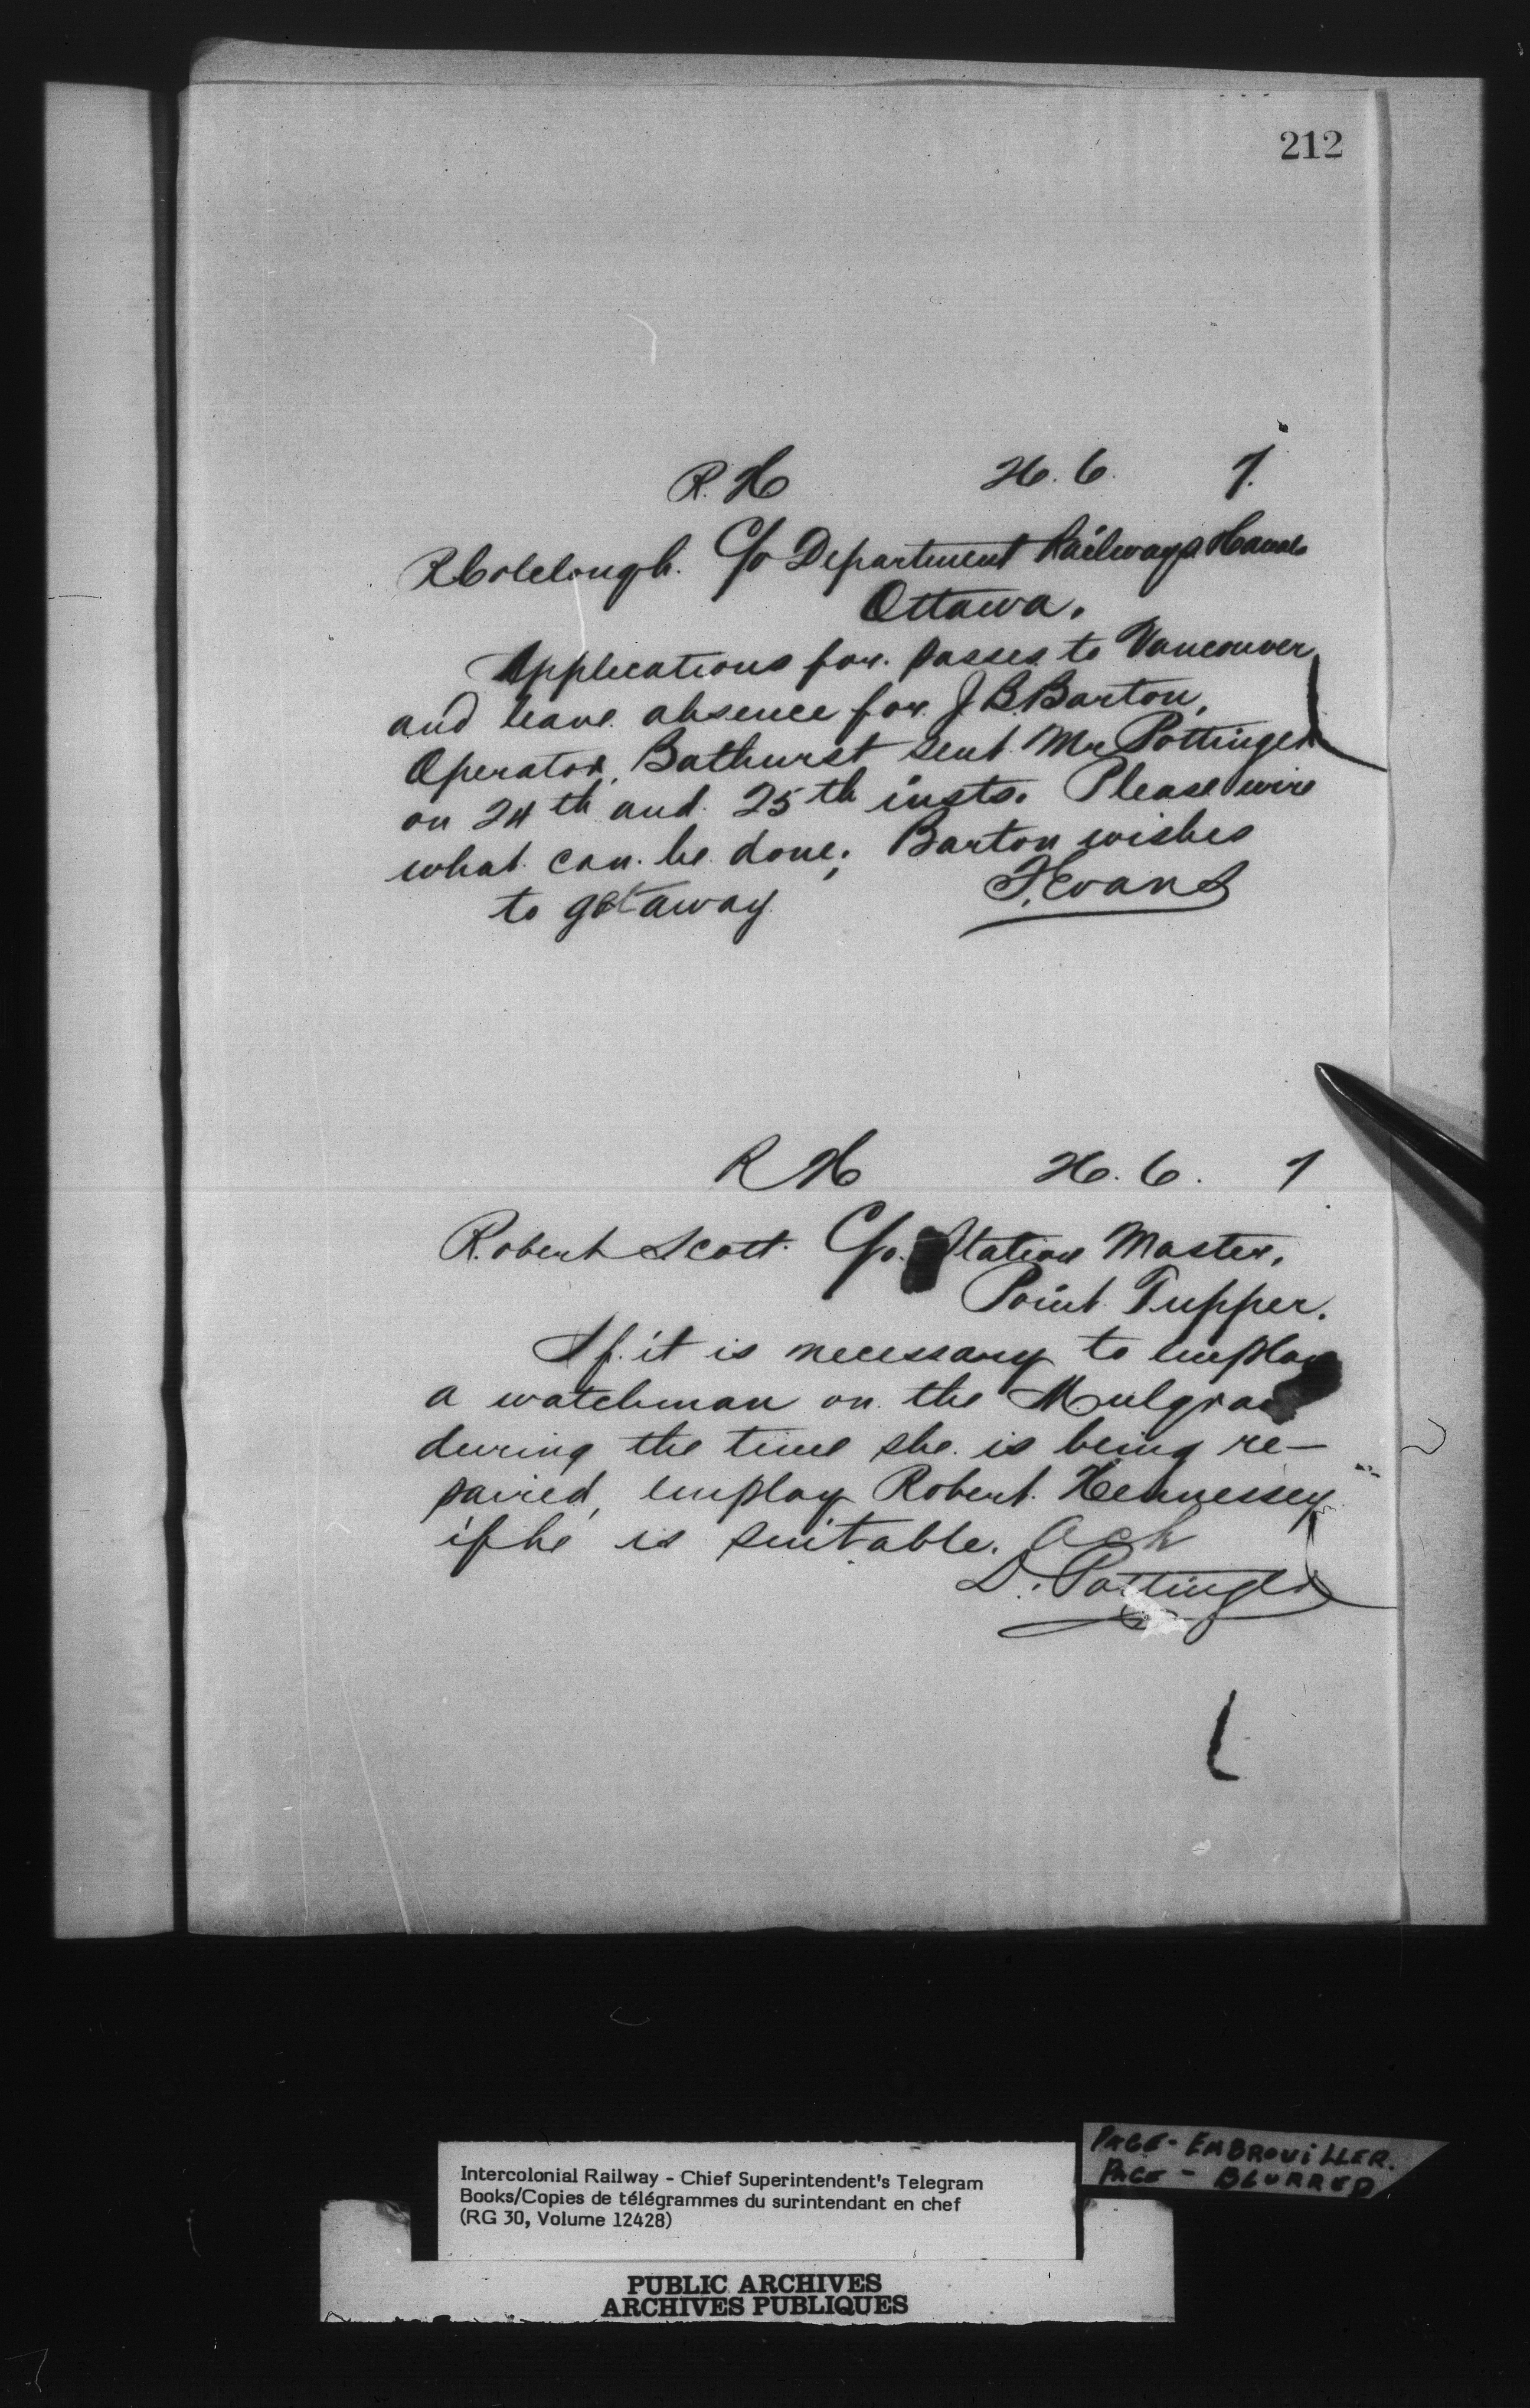 212
R. H 26. 6. 7.
R Colclough. C/o Department Railways & Canals
Ottawa.
Applications for passes to Vancouver
and leave absence for J B. Barton,
Operator, Bathurst sent Mr Pottinger
on 24th and 25th insts. Please wire
what can be done; Barton wishes
to get away. F. Evans
R H 26. 6. 7
Robert Scott. C/o. Station Master,
Point Tupper.
If it is necessary to employ
a watchman on the Mulgrave
during the time she is being re-
paired, employ Robert Hennessey
if he is suitable. Ack
D. Pottinger
PAGE - EMBROUiLLER.
PAGE - BLURRED
Intercolonial Railway - Chief Superintendent's Telegram
Books/Copies de télégrammes du surintendant en chef
(RG 30, Volume 12428)
PUBLIC ARCHIVES
ARCHIVES PUBLIQUES